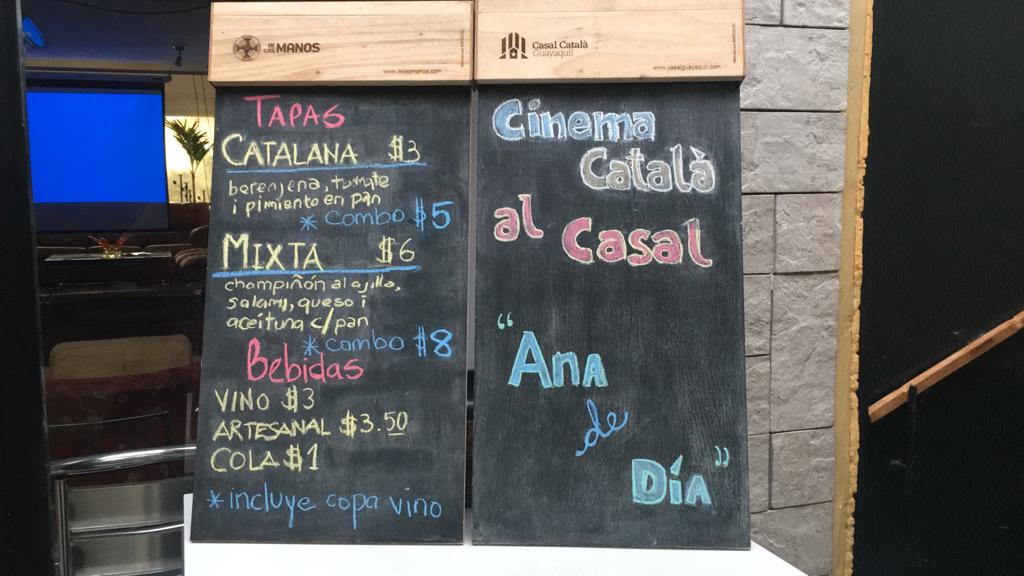 DE LAS MANOS
www.delasmanos.com
TAPAS
CATALANA $3
berenjena, tomate
i pimiento en pan
* combo $5
MIXTA $6
champiñón al ajillo,
salami, queso i
aceituna c/pan
* combo $8
Bebidas
VINO $3
ARTESANAL $3.50
COLA $1
* incluye copa vino
Casal Català
Guayaquil
www.casalguayaquil.com
Cinema
Català
al Casal
"Ana
de
Día"